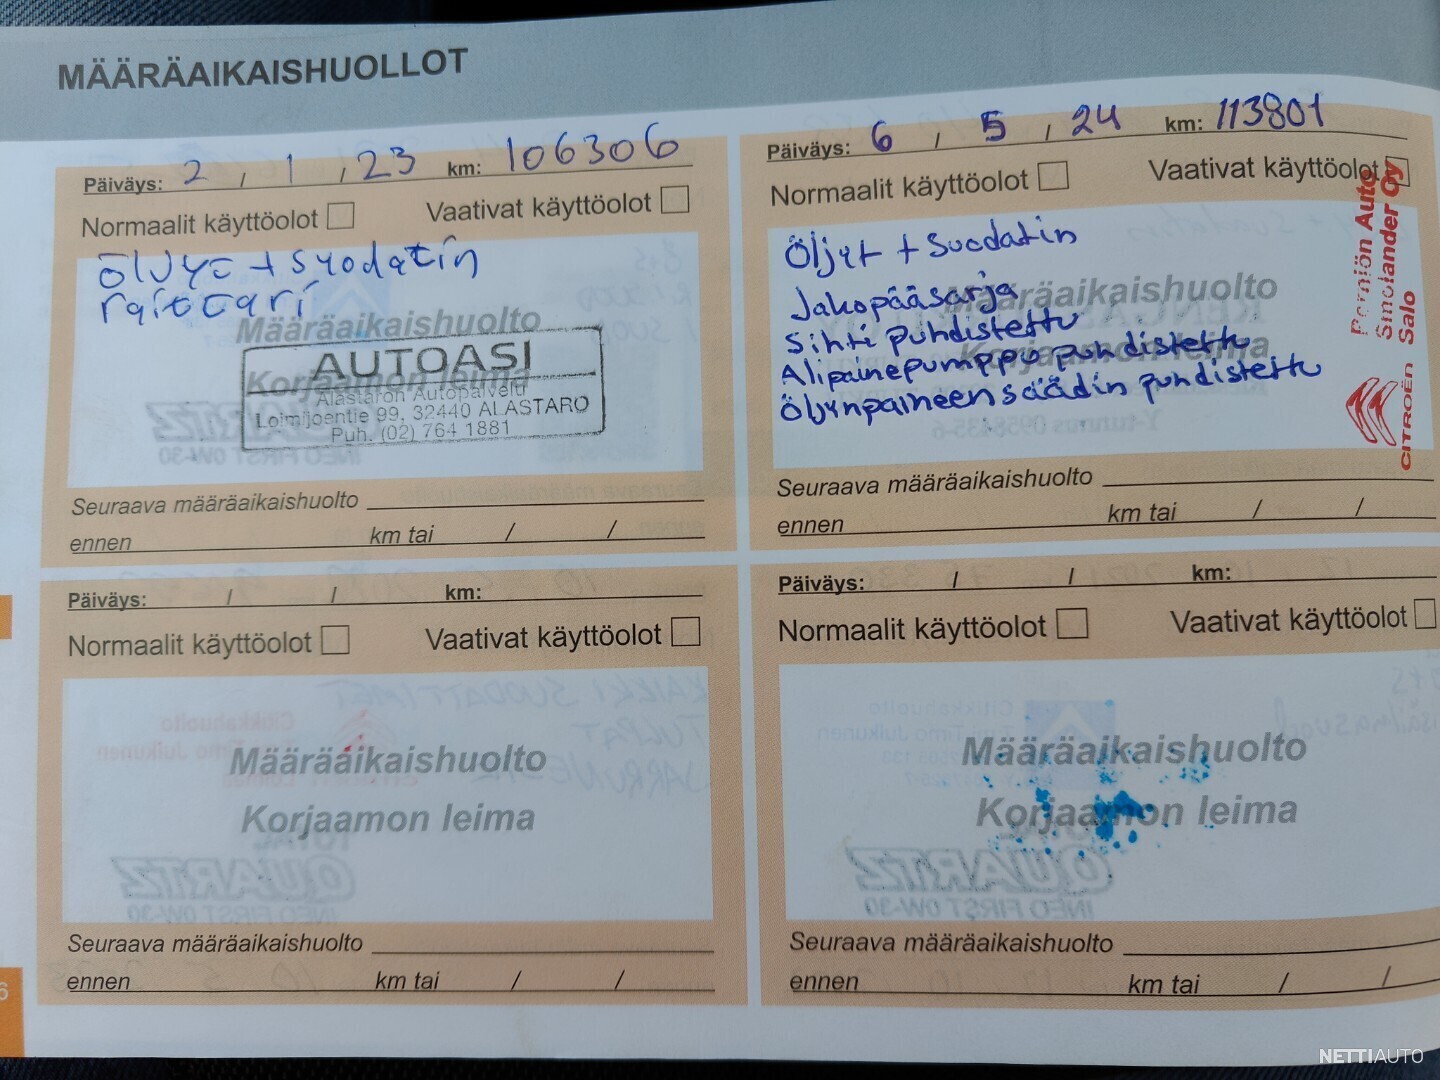 MÄÄRÄAIKAISHUOLLOT
Päiväys: 2 / 1 / 23 km: 106306
Normaalit käyttöolot Vaativat käyttöolot
suodatin
raitisari
Määräaikaishuolto
Korjaamon leima
AUTOASI
Alastaron Autopalvelu
Loimijoentie 99, 32440 ALASTARO
Puh. (02) 764 1881
Seuraava määräaikaishuolto
ennen km tai / /
Päiväys: 6 / 5 / 24 km: 113801
Normaalit käyttöolot Vaativat käyttöolot
Öljyt + Suodatin
Jakopääsarja
Sihti puhdistettu
Alipainepumppu puhdistettu
Öljynpaineensäädin puhdistettu
Määräaikaishuolto
Korjaamon leima
Perniön Auto
Smolander Oy
Salo
CITROËN
Seuraava määräaikaishuolto
ennen km tai / /
Päiväys: / / km:
Normaalit käyttöolot Vaativat käyttöolot
Määräaikaishuolto
Korjaamon leima
Seuraava määräaikaishuolto
ennen km tai / /
Päiväys: / / km:
Normaalit käyttöolot Vaativat käyttöolot
Määräaikaishuolto
Korjaamon leima
Seuraava määräaikaishuolto
ennen km tai / /
6
NETTIAUTO